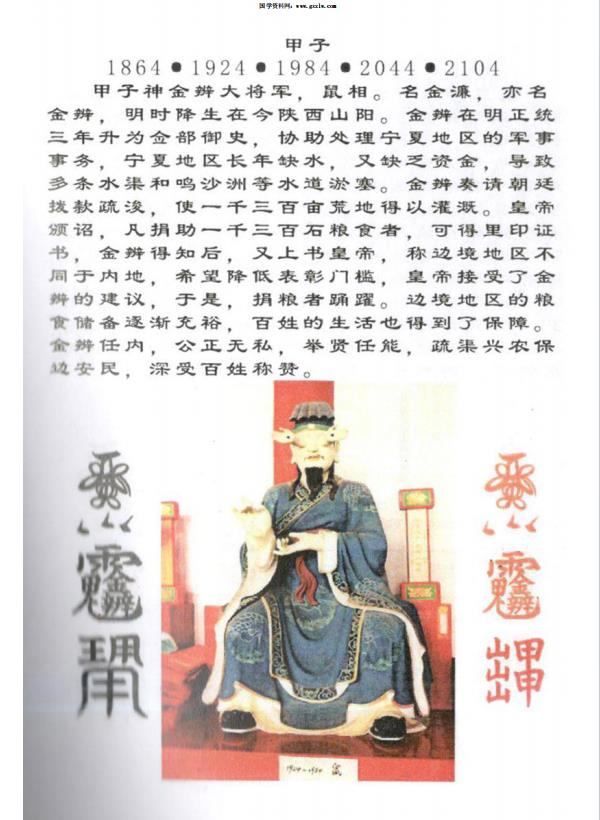 国学资料网：www.gxzlw.com
甲子
1864●1924●1984●2044●2104
甲子神金辨大将军，鼠相。名金濂，亦名
金辨，明时降生在今陕西山阳。金辨在明正统
三年升为佥部御史，协助处理宁夏地区的军事
事务，宁夏地区长年缺水，又缺乏资金，导致
多条水渠和鸣沙洲等水道淤塞。金辨奏请朝廷
拨款疏浚，使一千三百亩荒地得以灌溉。皇帝
颁诏，凡捐助一千三百石粮食者，可得里印证
书，金辨得知后，又上书皇帝，称边境地区不
同于内地，希望降低表彰门槛，皇帝接受了金
辨的建议，于是，捐粮者踊跃。边境地区的粮
食储备逐渐充裕，百姓的生活也得到了保障。
金辨任内，公正无私，举贤任能，疏渠兴农保
边安民，深受百姓称赞。
鼠